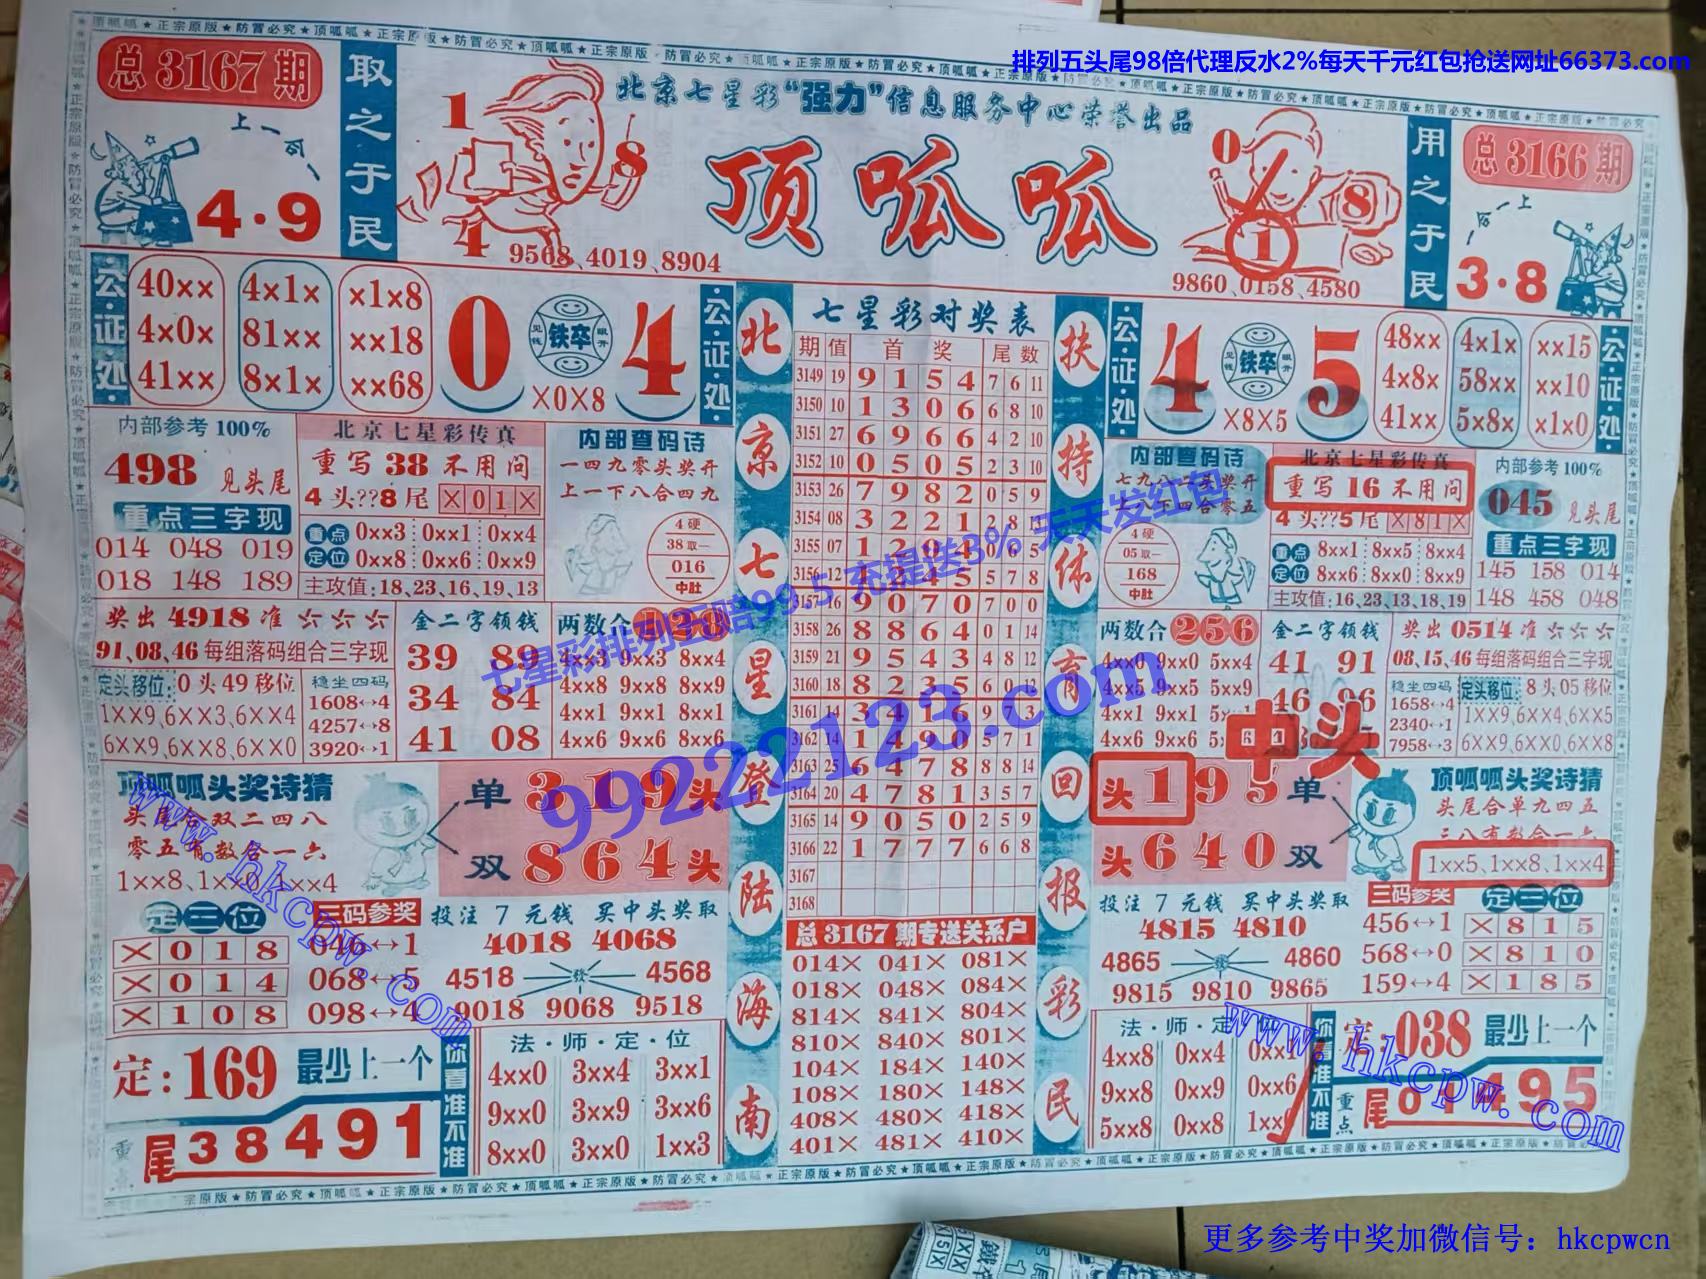 排列五头尾98倍代理反水2%每天千元红包抢送网址66373.com
总3167期
取之于民
上一
4·9
1
8
4
9568、4019、8904
北京七星彩“强力”信息服务中心荣誉出品
顶呱呱
0
8
1
9860、0158、4580
用之于民
总3166期
上一
3·8
公证处
40×× 4×1× ×1×8
4×0× 81×× ××18
41×× 8×1× ××68
0 铁卒 4
×0×8
公证处
内部参考100%
498 见头尾
重点三字现
014 048 019
018 148 189
北京七星彩传真
重写38不用问
4头??8尾 ×01×
重点定位
0××3 0××1 0××4
0××8 0××6 0××9
主攻值:18,23,16,19,13
内部查码诗
一四九零头奖开
上一下八合四九
4硬
38取一
016
中肚
奖出4918准
91,08,46每组落码组合三字现
定头移位: 0头49移位
1××9,6××3,6××4
6××9,6××8,6××0
稳坐四码
1608↔4
4257↔8
3920↔1
金二字领钱
39 89
34 84
41 08
两数合
4××3 9××3 8××4
4××8 9××8 8××9
4××1 9××1 8××1
4××6 9××6 8××6
顶呱呱头奖诗猜
头尾合双二四八
零五有数合一六
1××8、1××0、1××4
单319头
双864头
定三位
×018
×014
×108
三码参奖
046↔1
068↔5
098↔4
投注7元钱 买中头奖取
4018 4068
4518 4568
9018 9068 9518
定:169 最少上一个
重点
尾38491
你看准不准
法·师·定·位
4××0 3××4 3××1
9××0 3××9 3××6
8××0 3××0 1××3
北京七星登陆海南
七星彩对奖表
期 值 首奖 尾数
3149 19 9 1 5 4 7 6 11
3150 10 1 3 0 6 6 8 10
3151 27 6 9 6 6 4 2 10
3152 10 0 5 0 5 2 3 10
3153 26 7 9 8 2 0 5 9
3154 08 3 2 2 1 2 8
3155 07 1 2
3156 12
3157 16 9 0 7 0 7 0 0
3158 26 8 8 6 4 0 1 14
3159 21 9 5 4 3 4 8 12
3160 18 8 2 3 5 6 0 12
3161 14 3 4 1 6 9 7 3
3162 14 1 4 9 0 5 7 1
3163 25 6 4 7 8 8 8 14
3164 20 4 7 8 1 3 5 7
3165 14 9 0 5 0 2 5 9
3166 22 1 7 7 7 6 6 8
3167
3168
总3167期专送关系户
014× 041× 081×
018× 048× 084×
814× 841× 804×
810× 840× 801×
104× 184× 140×
108× 180× 148×
408× 480× 418×
401× 481× 410×
扶持体育回报彩民
公证处
4 铁卒 5
×8×5
48×× 4×1× ××15
4×8× 58×× ××10
41×× 5×8× ×1×0
公证处
内部查码诗
七九八二头奖开
4硬
05取一
168
中肚
北京七星彩传真
重写16不用问
4头??5尾 ×81×
重点定位
8××1 8××5 8××4
8××6 8××0 8××9
主攻值:16,23,13,18,19
内部参考100%
045 见头尾
重点三字现
145 158 014
148 458 048
两数合256
4××0 9××0 5××4
4××5 9××5 5××9
4××1 9××1
4××6 9××6
金二字领钱
41 91
46 96
中头
奖出0514准
08,15,46每组落码组合三字现
稳坐四码
1658↔4
2340↔1
7958↔3
定头移位: 8头05移位
1××9,6××4,6××5
6××9,6××0,6××8
头195单
头640双
顶呱呱头奖诗猜
头尾合单九四五
三八有数合一六
1××5、1××8、1××4
投注7元钱 买中头奖取
4815 4810
4865 4860
9815 9810 9865
三码参奖
456↔1
568↔0
159↔4
定三位
×815
×810
×185
法·师·定·位
4××8 0××4
9××8 0××9 0××6
5××8 0××8
定:038 最少上一个
重点
尾01495
七星彩排列五赔99.5 充提送3% 天天发红包
99222123.com
www.hkcpw.com
www.hkcpw.com
更多参考中奖加微信号：hkcpwcn